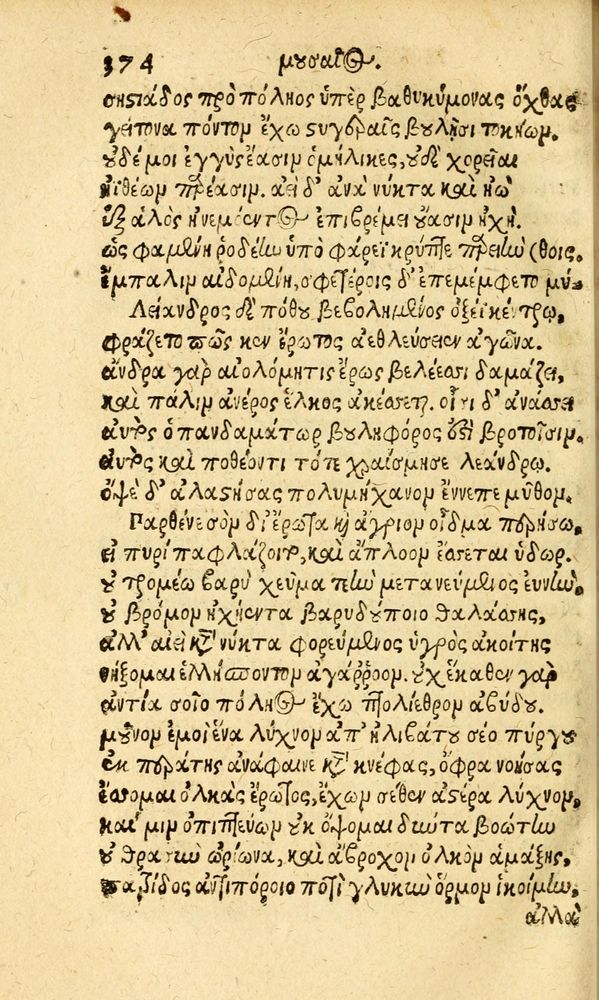 374 μουσαῖος.
σηςιάδος πρὸ πόληος ὑπὲρ βαθυκύμονας ὄχθας
γείτονα πόντον ἔχω ςυγεραῖς βουλῇσι τοκήων.
οὐδέ μοι ἐγγὺς ἔασιν ὁμήλικες, οὐδὲ χορεῖαι
ἠϊθέων παρέασιν. αἰεὶ δ' ἀνὰ νύκτα καὶ ἠῶ
ἐξ ἁλὸς ἠνεμόεντος ἐπιβρέμει οὔασιν ἠχή.
ὣς φαμένη ῥοδέην ὑπὸ φάρεϊ κρύπτε παρειὴν (θοις.
ἔμπαλιν αἰδομένη, σφετέροις δ' ἐπεμέμφετο μύ-
Λείανδρος δὲ πόθου βεβολημένος ὀξέϊ κέντρῳ,
φράζετο πῶς κεν ἔρωτος ἀεθλεύσειεν ἀγῶνα.
ἄνδρα γὰρ αἰολόμητις ἔρως βελέεσσι δαμάζει,
καὶ πάλιν ἀνέρος ἕλκος ἀκέσσεται. οἷσι δ' ἀνάσσει
αὐτὸς ὁ πανδαμάτωρ βουληφόρος ἐςὶ βροτοῖσιν.
αὐτὸς καὶ ποθέοντι τότε χραίσμησε λεάνδρῳ.
ὀψὲ δ' ἀλαςήσας πολυμήχανον ἔννεπε μῦθον.
Παρθένε σὸν δι' ἔρωτα καὶ ἄγριον οἶδμα περήσω,
εἰ πυρὶ παφλάζοιτο, καὶ ἄπλοον ἔσσεται ὕδωρ.
οὐ τρομέω βαρὺ χεῦμα τεὴν μετανεύμενος εὐνὴν,
οὐ βρόμον ἠχήεντα βαρυδούποιο θαλάσσης,
ἀλλ' αἰεὶ κατὰ νύκτα φορεύμενος ὑγρὸς ἀκοίτης
νήξομαι ἑλλήσποντον ἀγάρροον. οὐχ ἕκαθεν γὰρ
ἀντία σοῖο πόληος ἔχω πτολίεθρον ἀβύδου.
μοῦνον ἐμοὶ ἕνα λύχνον ἀπ' ἠλιβάτου σέο πύργου
ἐκ περάτης ἀνάφαινε κατὰ κνέφας, ὄφρα νοήσας
ἔσσομαι ὁλκὰς ἔρωτος, ἔχων σέθεν ἀςέρα λύχνον,
καί μιν ὀπιπτεύων οὐκ ὄψομαι δύοντα βοώτην
οὐ θρασὺν ὠρίωνα, καὶ ἄβροχον ὁλκὸν ἁμάξης,
πατρίδος ἀντιπόροιο ποτὶ γλυκὺν ὅρμον ἱκοίμην,
ἀλλὰ